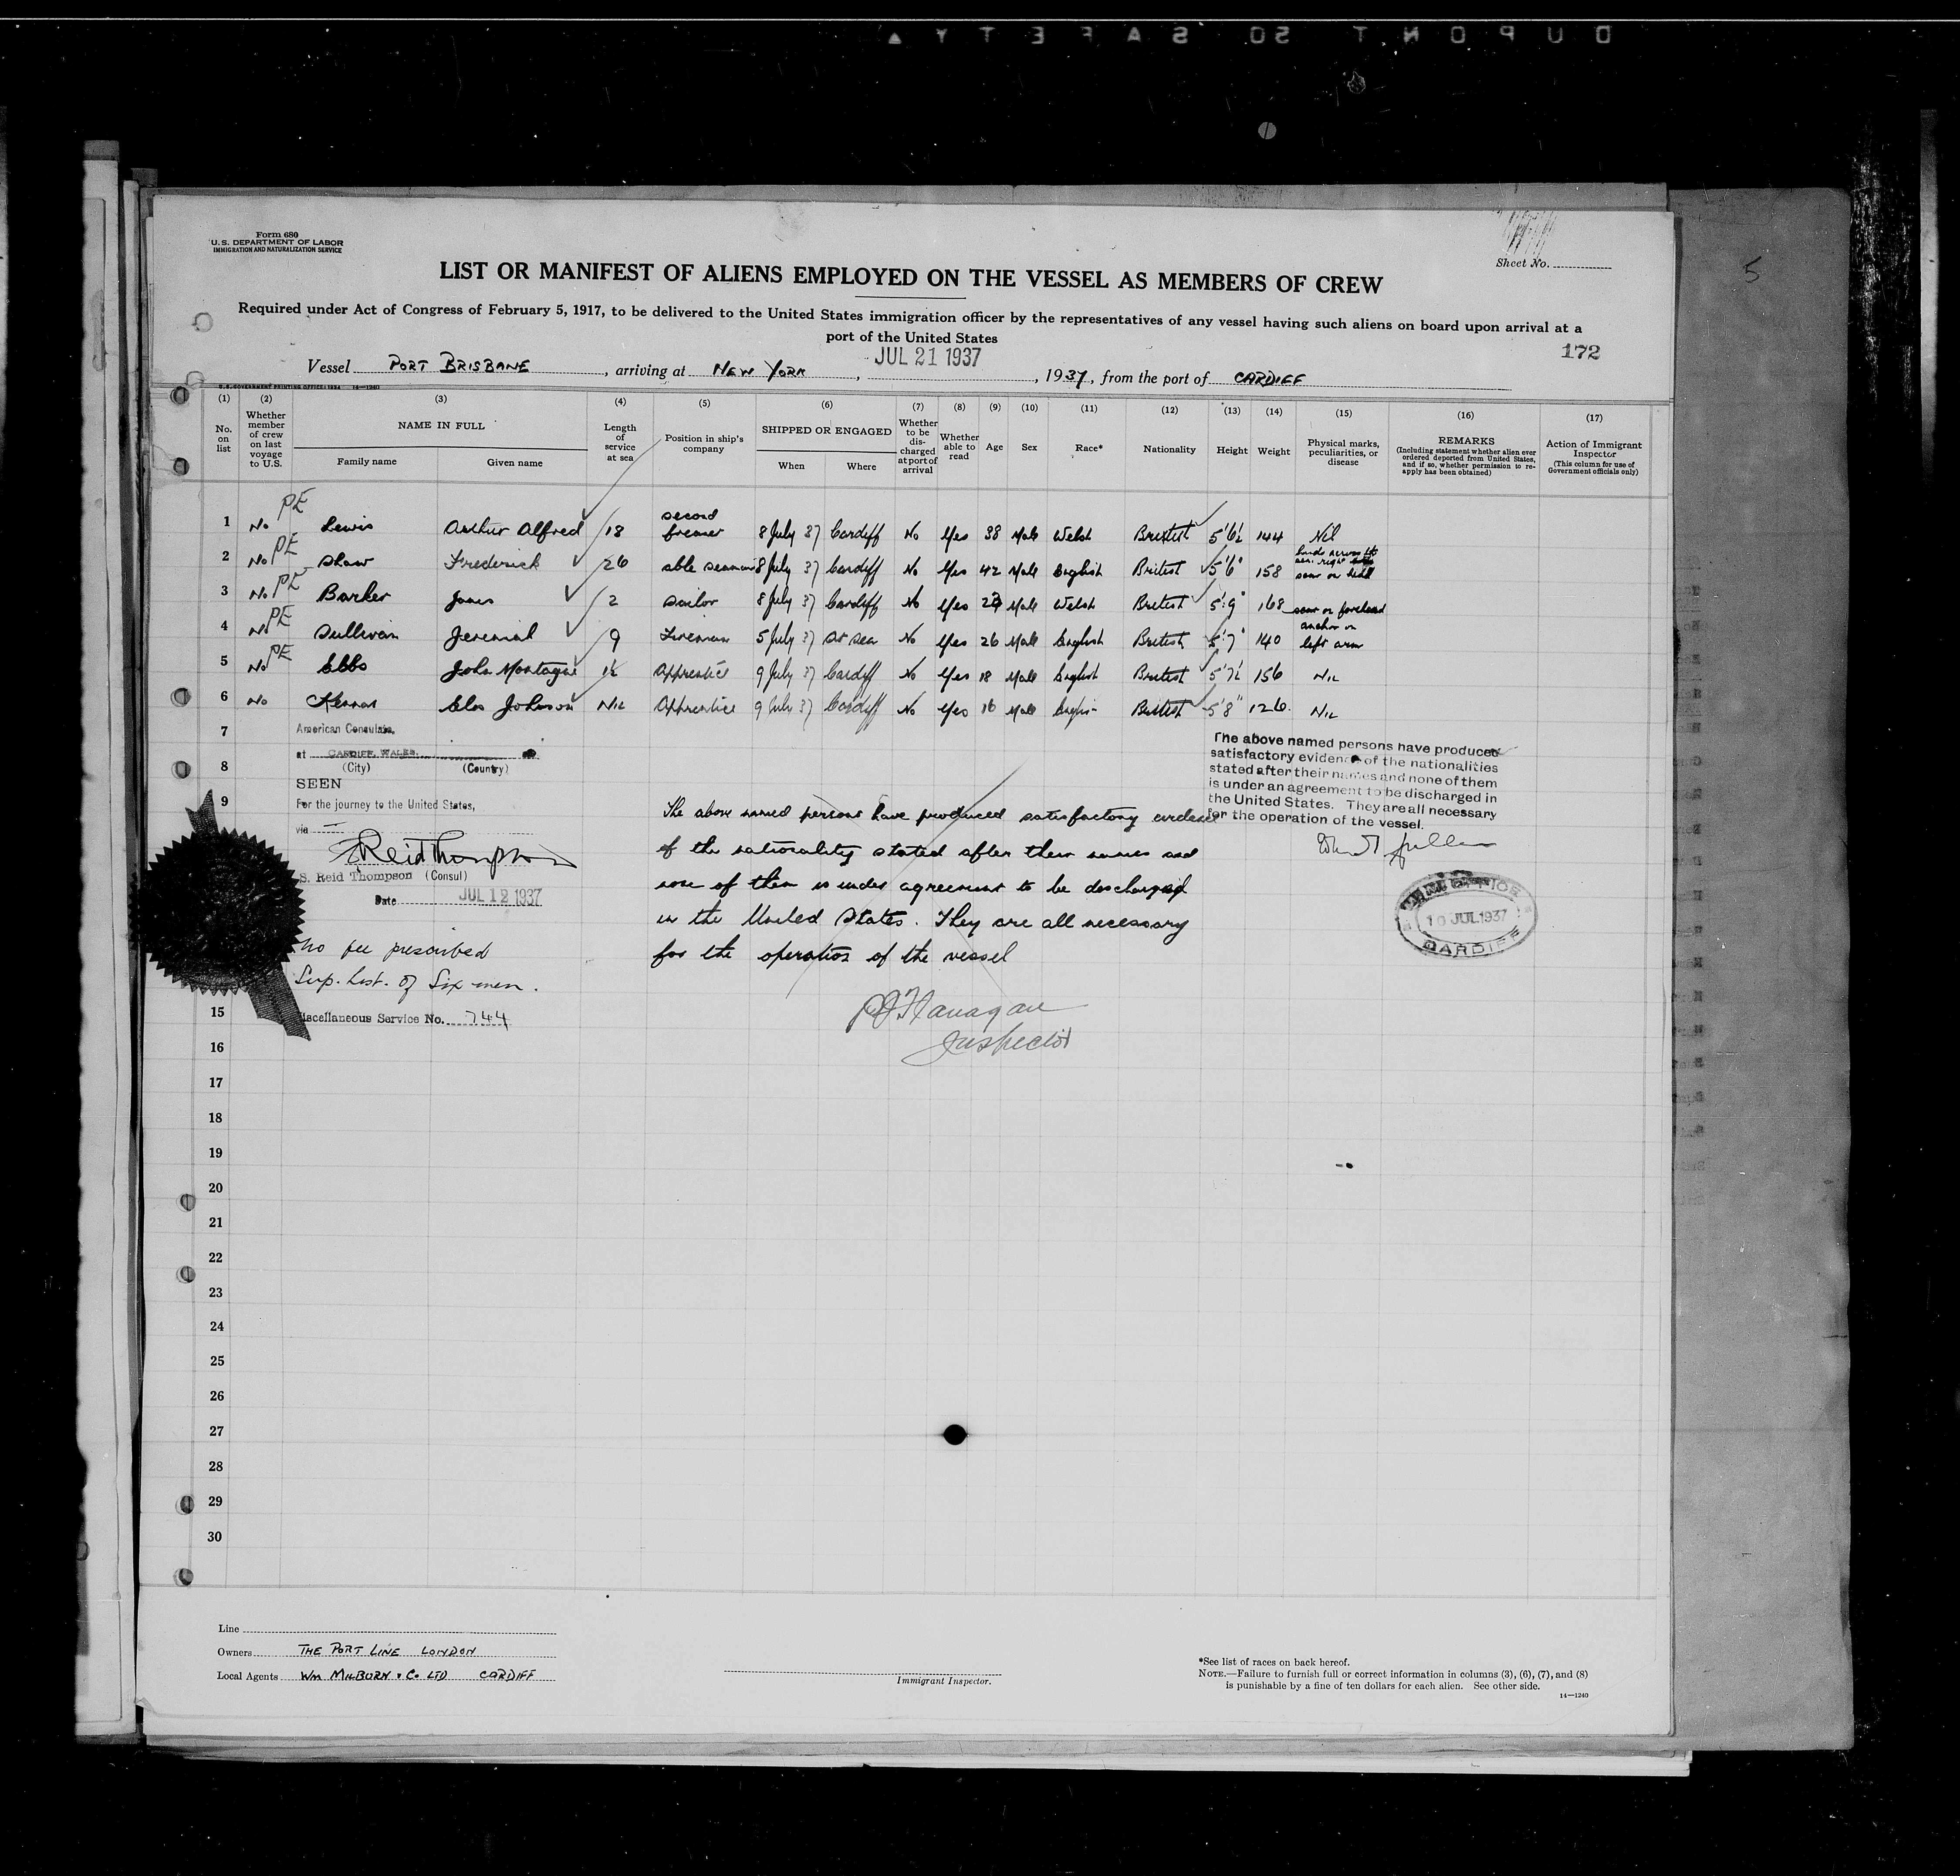 DUPONT SAFETY
5
Form 680
U.S. DEPARTMENT OF LABOR
IMMIGRATION AND NATURALIZATION SERVICE
Sheet No.
LIST OR MANIFEST OF ALIENS EMPLOYED ON THE VESSEL AS MEMBERS OF CREW
Required under Act of Congress of February 5, 1917, to be delivered to the United States immigration officer by the representatives of any vessel having such aliens on board upon arrival at a
port of the United States
172
Vessel PORT BRISBANE, arriving at NEW YORK, JUL 21 1937, 1937, from the port of CARDIFF
U.S. GOVERNMENT PRINTING OFFICE: 1934 14—1240
(1) (2) (3) (4) (5) (6) (7) (8) (9) (10) (11) (12) (13) (14) (15) (16) (17)
No. on list
Whether member of crew on last voyage to U.S.
NAME IN FULL
Family name
Given name
Length of service at sea
Position in ship's company
SHIPPED OR ENGAGED
When
Where
Whether to be discharged at port of arrival
Whether able to read
Age
Sex
Race*
Nationality
Height
Weight
Physical marks, peculiarities, or disease
REMARKS
(Including statement whether alien ever ordered deported from United States, and if so, whether permission to reapply has been obtained)
Action of Immigrant Inspector
(This column for use of Government officials only)
1 No PE Lewis Arthur Alfred 18 second fireman 8 July 37 Cardiff No Yes 38 Male Welsh British 5'6½ 144 Nil
2 No PE Shaw Frederick 26 able seaman 8 July 37 Cardiff No Yes 42 Male English British 5'6" 158 scar on
3 No PE Barker James 2 Sailor 8 July 37 Cardiff No Yes Male Welsh British 5'9" 168 scar on forehead
4 No PE Sullivan Jeremiah 9 Fireman 5 July 37 at sea No Yes 26 Male English British 5'7" 140 anchor on left arm
5 No PE Ebbs John Montague 1½ Apprentice 9 July 37 Cardiff No Yes 18 Male English British 5'7½ 156 Nil
6 No Chas Johnson Nil Apprentice 9 July 37 Cardiff No Yes 16 Male British 5'8" 126 Nil
7
American Consulate,
at CARDIFF, WALES.
(City) (Country)
8
SEEN
9
For the journey to the United States,
via
S. Reid Thompson
S. Reid Thompson (Consul)
Date JUL 12 1937
No fee prescribed
Sup. List. of Six men.
Miscellaneous Service No. 744
The above named persons have produced satisfactory evidence
of the nationality stated after their names and
none of them is under agreement to be discharged
in the United States. They are all necessary
for the operation of the vessel
Flanagan
Inspector
The above named persons have produced
satisfactory evidence of the nationalities
stated after their names and none of them
is under an agreement to be discharged in
the United States. They are all necessary
for the operation of the vessel.
10 JUL 1937
CARDIFF
15
16
17
18
19
20
21
22
23
24
25
26
27
28
29
30
Line
Owners THE PORT LINE LONDON
Local Agents Wm MILBURN & Co LTD CARDIFF
Immigrant Inspector.
*See list of races on back hereof.
NOTE.—Failure to furnish full or correct information in columns (3), (6), (7), and (8)
is punishable by a fine of ten dollars for each alien. See other side.
14—1240